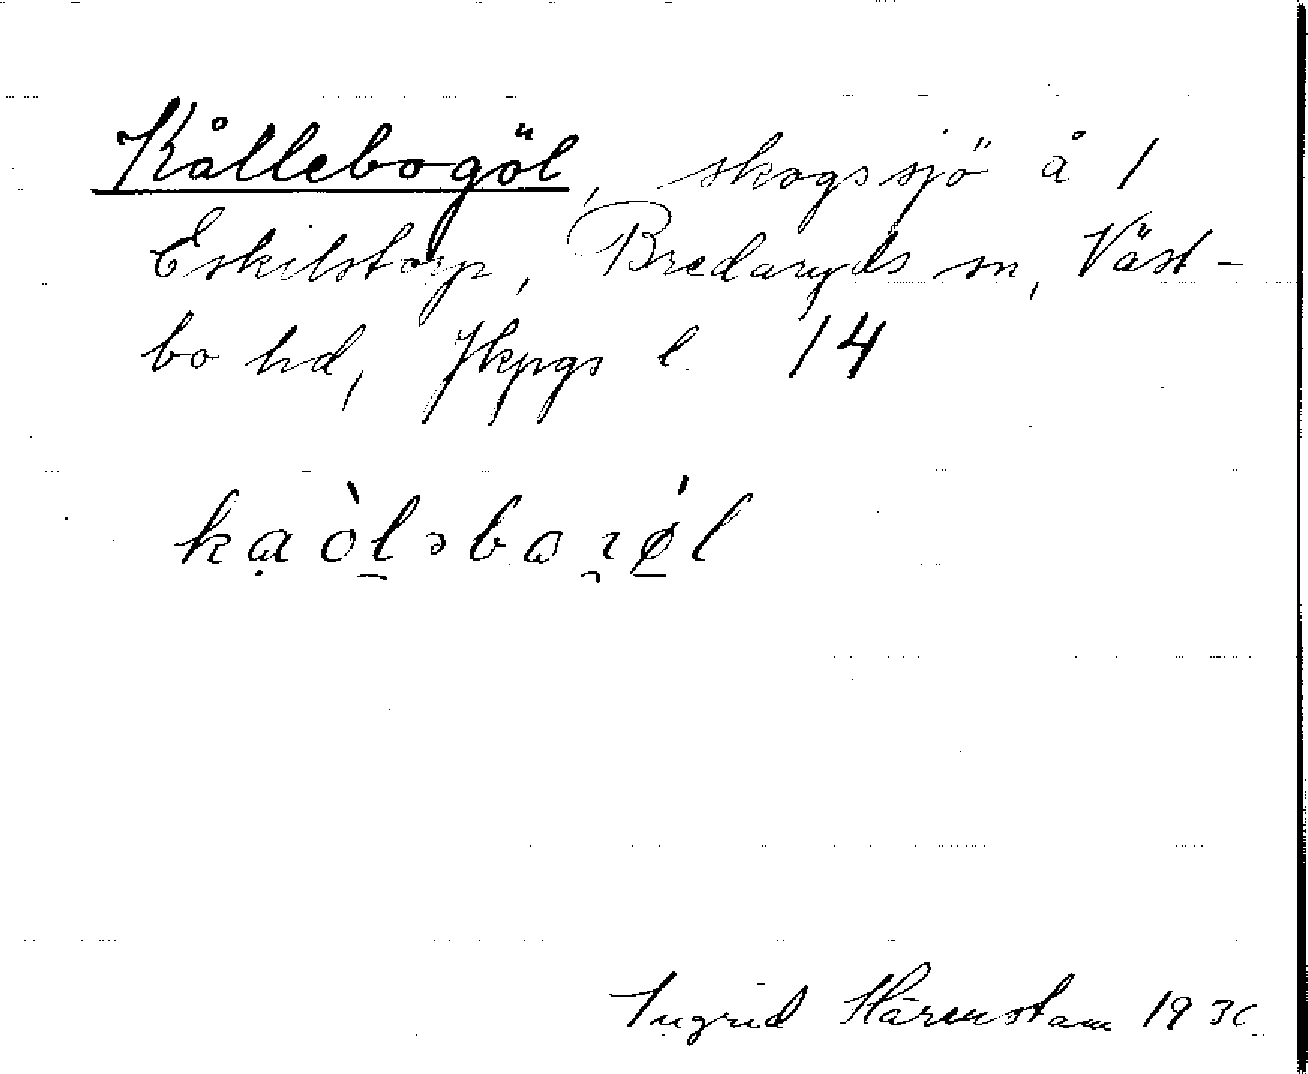 Kållebogöl, skogssjö å 1
Eskilstorp, Bredaryds sn, Väst-
bo hd, Jkpgs l. 14
Ingrid Härenstam 193